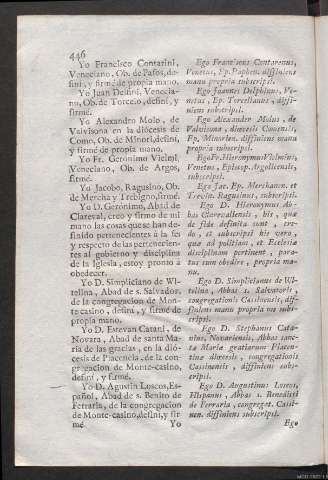 446
Yo Francisco Contarini,
Veneciano, Ob. de Pafos, de-
fini, y firmé de propia mano.
Yo Juan Delfini, Venecia-
no, Ob. de Torcelo, defini, y
firmé.
Yo Alexandro Molo, de
Valvisona en la diócesis de
Como, Ob. de Minori, defini,
y firmé de propia mano.
Yo Fr. Gerónimo Vielmi,
Veneciano, Ob. de Argos,
firmé.
Yo Jacobo, Ragusino, Ob.
de Mercha y Trebigno, firmé.
Yo D. Gerónimo, Abad de
Claraval, creo y firmo de mi
mano las cosas que se han de-
finido pertenecientes á la fe;
y respecto de las pertenecien-
tes al gobierno y disciplina
de la Iglesia, estoy pronto á
obedecer.
Yo D. Simpliciano de Wl-
telina, Abad de s. Salvador,
de la congregacion de Mon-
te-casino, defini, y firmé de
propia mano.
Yo D. Estevan Catani, de
Novara, Abad de santa Ma-
ría de las gracias, en la dió-
cesis de Placencia, de la con-
gregacion de Monte-casino,
defini, y firmé.
Yo D. Agustin Loscos, Es-
pañol, Abad de s. Benito de
Ferraria, de la congregacion
de Monte-casino, defini, y fir-
mé
Yo
Ego Franciscus Contarenus,
Venetus, Ep. Paphen. diffiniens
manu propria subscripsi.
Ego Joannes Delphinus, Ve-
netus, Ep. Torcellanus, diffi-
niens subscripsi.
Ego Alexander Molus, de
Valvisona, diœcesis Comensis,
Ep. Minorien. diffiniens manu
propria subscripsi.
Ego Fr. Hieronymus Vielmius,
Venetus, Episcop. Argolicensis,
subscripsi.
Ego Jac. Ep. Merchanen. et
Trevin. Ragusinus, subscripsi.
Ego D. Hieronymus Ab-
bas Clarevallensis, his, quæ
de fide definita sunt, cre-
do, et subscripsi his vero,
quæ ad politiam, et Ecclesiæ
disciplinam pertinent, para-
tus sum obedire, propria ma-
nu.
Ego D. Simplicianus de Wl-
telina, Abbas s. Salvatoris,
congregationis Cassinensis, dif-
finiens manu propria me subs-
cripsi.
Ego D. Stephanus Cata-
nius, Novariensis, Abbas sanc-
tæ Mariæ gratiarum Placen-
tinæ diœcesis, congregationis
Cassinensis, diffiniens subs-
cripsi.
Ego D. Augustinus Loscos,
Hispanus, Abbas s. Benedicti
de Ferraria, congregat. Cassi-
nen. diffiniens subscripsi.
Ego